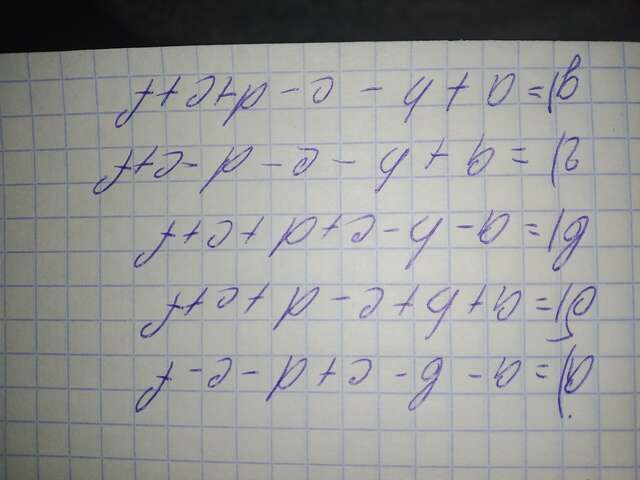 а) = a - b - c + d - e - f
б) = a + b + c - d + e + f
в) = a - b - c + d + e + f
г) = a + b - c - d - e + f
д) = a + b - c - d + e + f